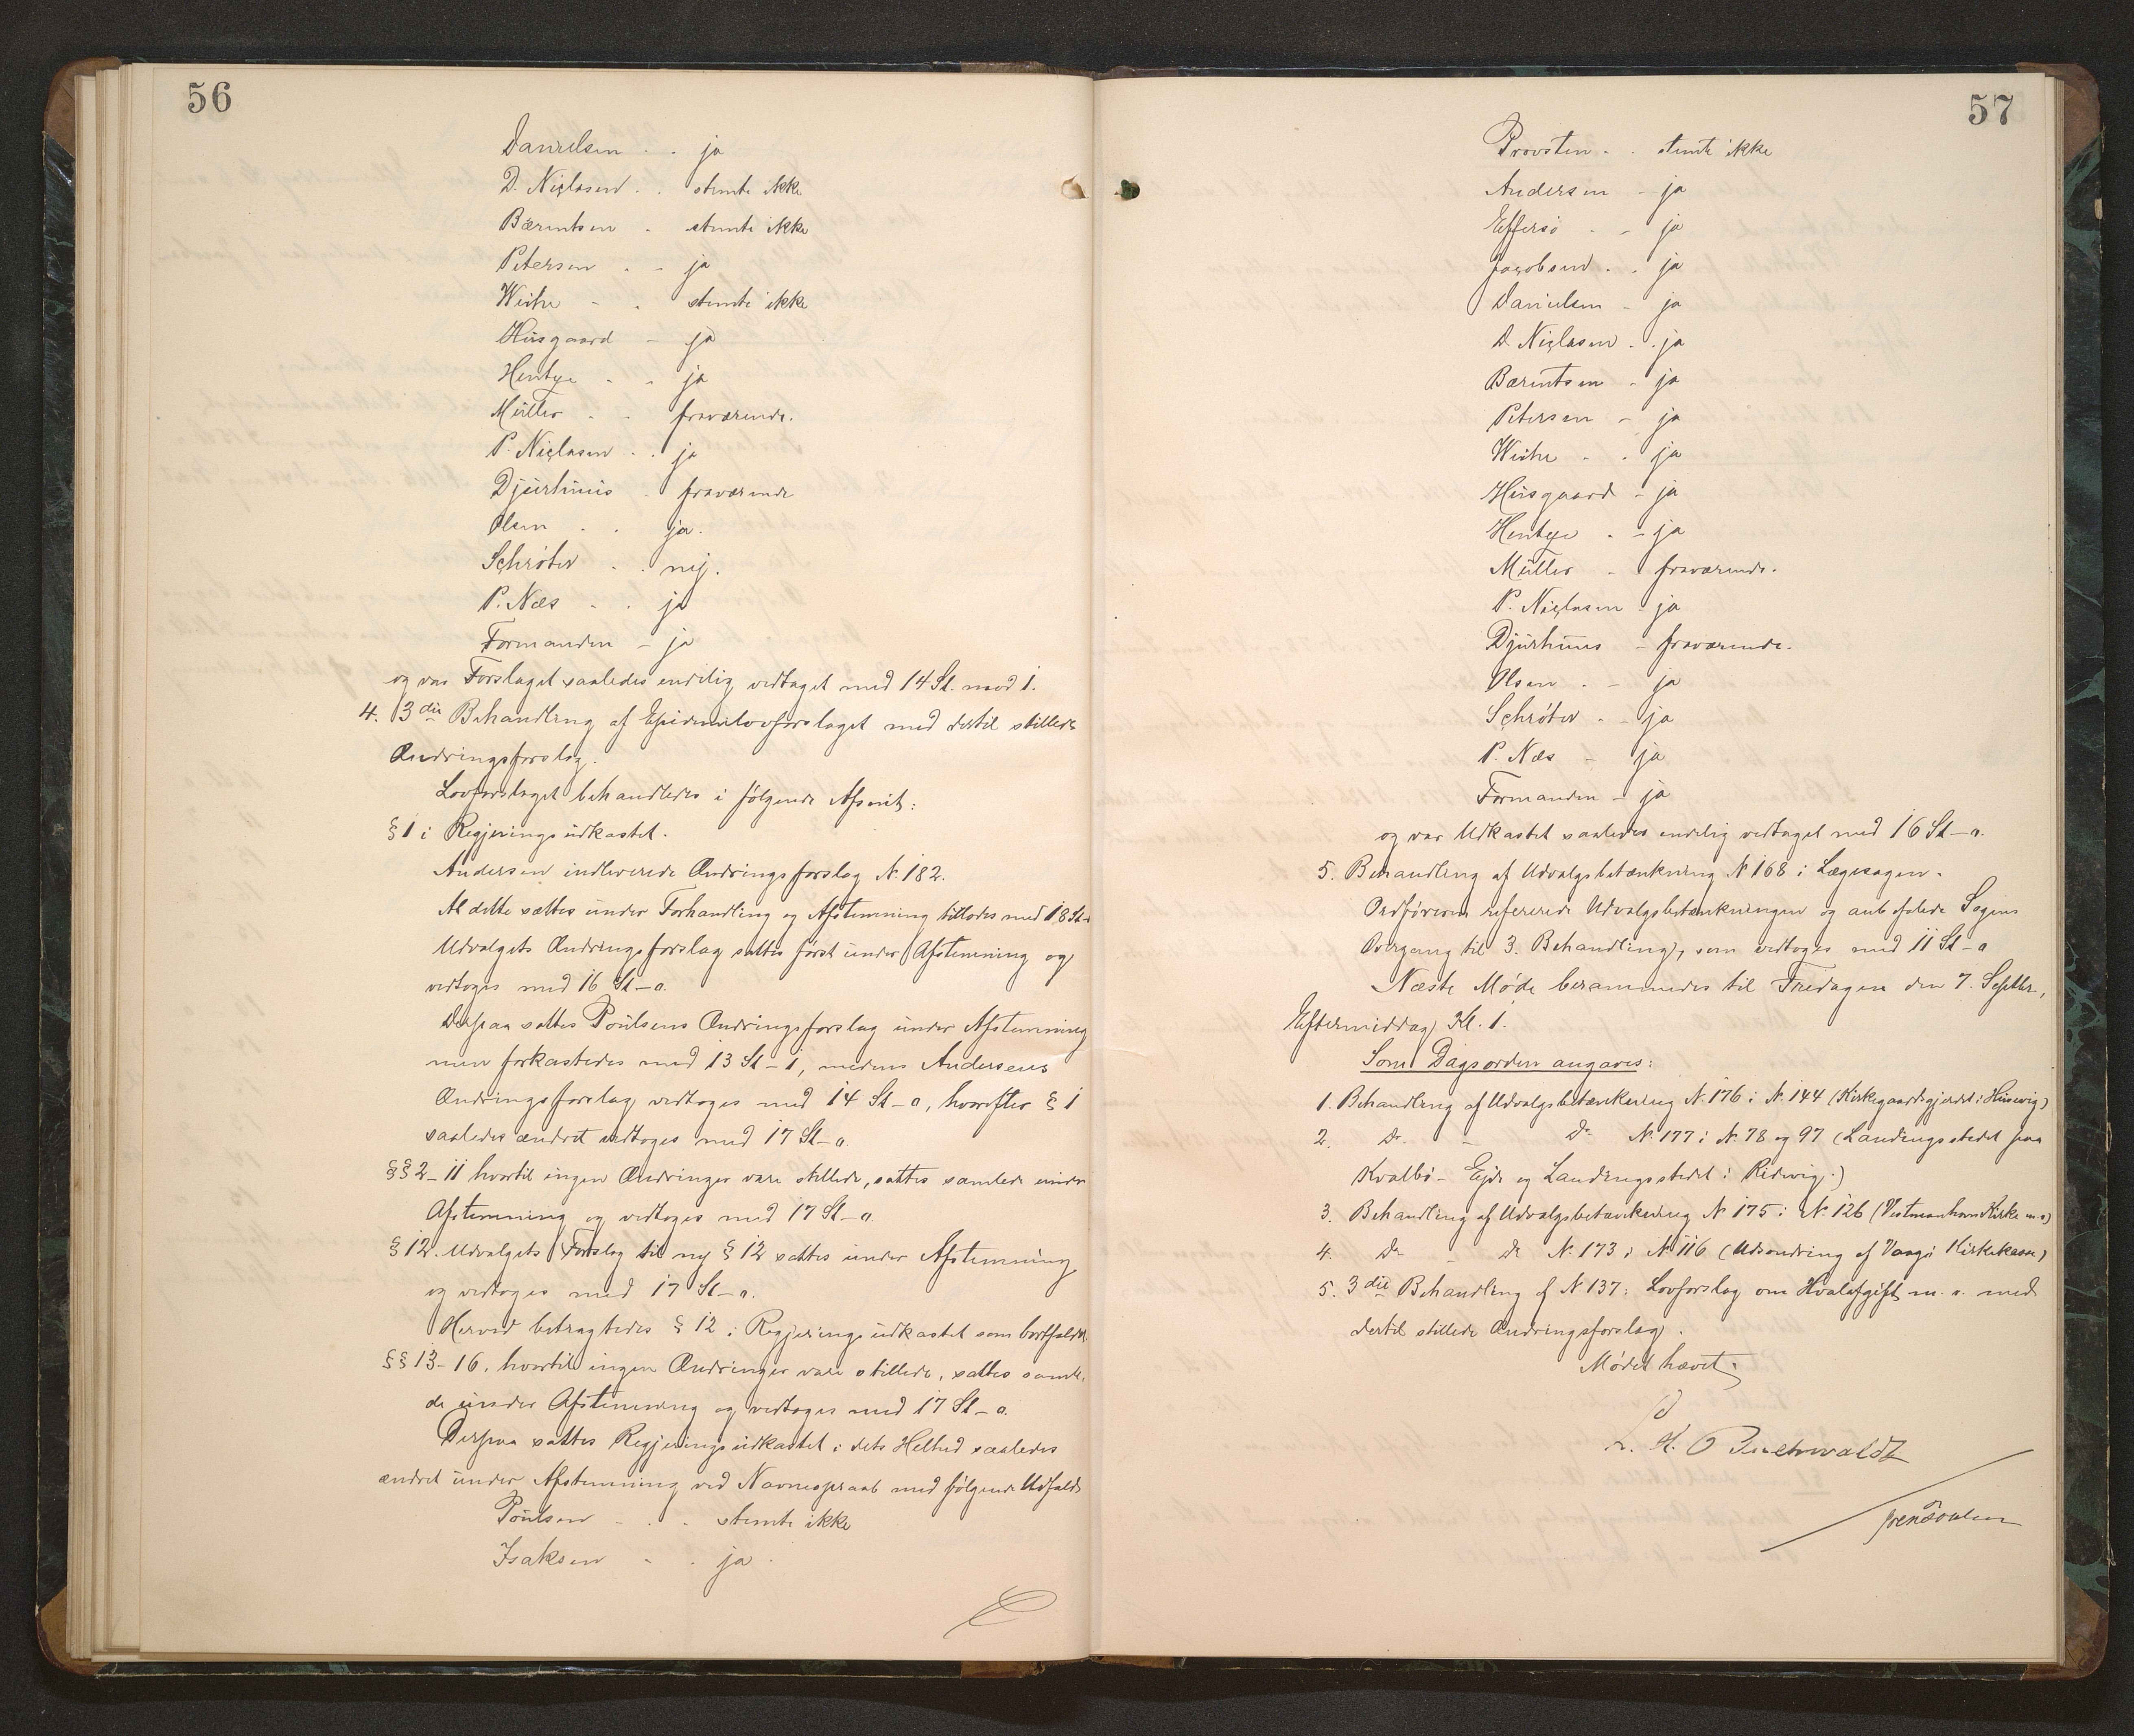 56
Danielsen - - ja
D. Niclasen - - stemte ikke
Bærentsen - stemte ikke
Petersen - - ja
Weihe - - stemte ikke
Husgaard - ja
Hentze - - ja
Müller - - fraværende.
P. Niclasen - - ja
Djurhuus - fraværende
Olsen - - ja.
Schrøter - - nej.
P. Næs - - ja
Formanden - ja
og var Forslaget saaledes endelig vedtaget med 14 St. mod 1.
4. 3die Behandling af Epidemilovforslaget med dertil stillede
Ændringsforslag.
Lovforslaget behandledes i følgende Afsnit:
§ 1 i Regjeringsudkastet.
Andersen indleverede Ændringsforslag N. 182.
At dette sattes under Forhandling og Afstemning tillodes med 18 St-
Udvalgets Ændringsforslag sattes først under Afstemning og
vedtoges med 16 St-0.
Derpaa sattes Poulsens Ændringsforslag under Afstemning
men forkastedes med 13 St-1, medens Andersens
Ændringsforslag vedtoges med 14 St-0, hvorefter § 1
saaledes ændret vedtoges med 17 St-0.
§§ 2-11 hvortil ingen Ændringer vare stillede, sattes samlede under
Afstemning og vedtoges med 17 St-0.
§ 12. Udvalgets Forslag til ny § 12 sattes under Afstemning
og vedtoges med 17 St-0.
Herved betragtedes § 12 i Regjeringsudkastet som bortfaldet.
§§ 13-16, hvortil ingen Ændringer vare stillede, sattes samle-
de under Afstemning og vedtoges med 17 St-0.
Derpaa sattes Regjeringsudkastet i dets Helhed saaledes
ændret under Afstemning ved Navneopraab med følgende Udfald:
Poulsen - - - stemte ikke
Isaksen - - ja.
57
Provsten - - stemte ikke
Andersen - ja
Effersø - - ja
Jacobsen - - ja
Danielsen - ja
D. Niclasen - - ja
Bærentsen - ja
Petersen - ja
Weihe - - ja
Husgaard - ja
Hentze - - ja
Müller - fraværende.
P. Niclasen - ja
Djurhuus - fraværende.
Olsen - - ja
Schrøter - - ja
P. Næs - ja
Formanden - ja
og var Udkastet saaledes endelig vedtaget med 16 St-0.
5. Behandling af Udvalgsbetænkning N 168 i Lægesagen.
Ordføreren refererede Udvalgsbetænkningen og anbefalede Sagens
Overgang til 3. Behandling, som vedtoges med 11 St-0
Næste Møde berammedes til Fredagen den 7. Septbr.,
Eftermiddag Kl. 1.
Som Dagsorden angaves:
1. Behandling af Udvalgsbetænkning N. 176 i N. 144 (Kirkegaardsgjerdet i Husevig)
2. Do - Do N. 177 i N. 78 og 97 (Landingsstedet paa
Kvalbø-Ejde og Landingsstedet i Ridevig.)
3. Behandling af Udvalgsbetænkning N 175 i N. 126 (Vestmanhavn Kirke m. v)
4. Do - Do N. 173 i N 116 (Udsondring af Vaags Kirkekasse)
5. 3die Behandling af N 137: Lovforslag om Hvalafgift m. v. med
dertil stillede Ændringsforslag.
Mødet hævet.
L. H. Buchwaldt